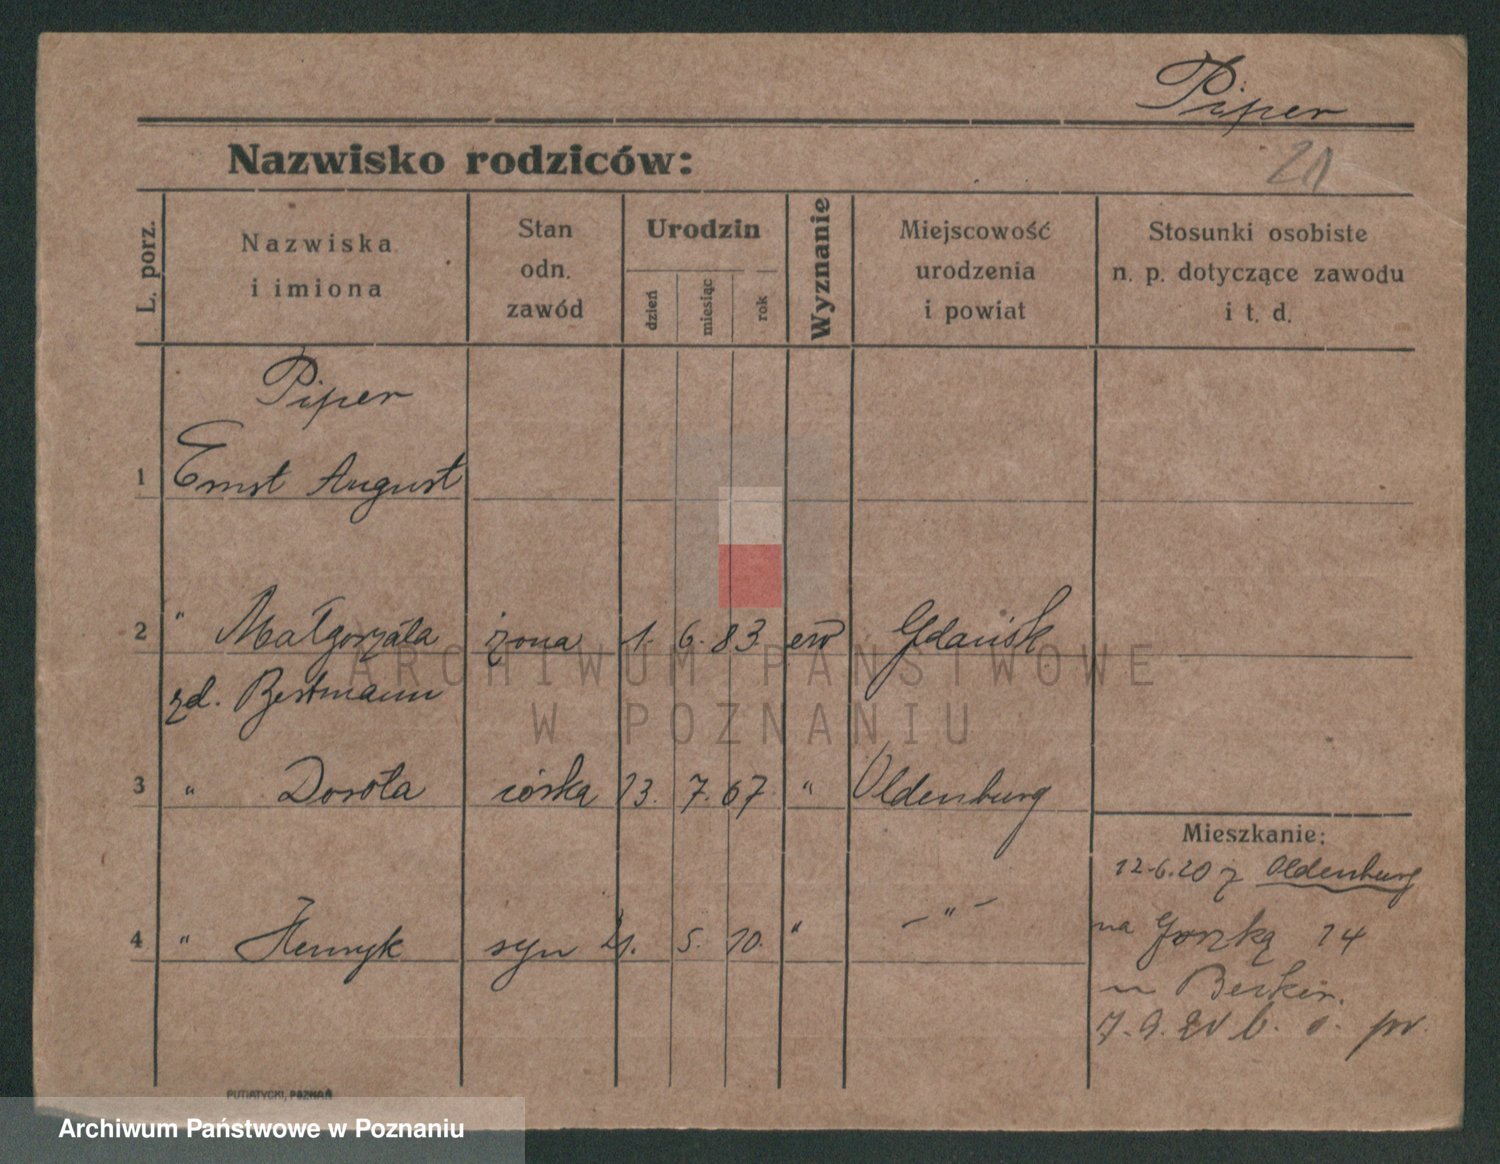 Piper
21
Nazwisko rodziców:
L. porz.
Nazwiska i imiona
Stan odn. zawód
Urodzin
dzień
miesiąc
rok
Wyznanie
Miejscowość urodzenia i powiat
Stosunki osobiste n. p. dotyczące zawodu i t. d.
Piper
1 Ernst August
2 " Małgorzata żona 1. 6. 83 ew Gdańsk
zd. Bestmann
3 " Dorota córka 13. 7. 07 " Oldenburg
Mieszkanie:
12.6.20 z Oldenburg
4 " Henryk syn 21. 5. 10. " — " —
na 14
u
7.9.20 b.
PUTIATYCKI, POZNAŃ
ARCHIWUM PAŃSTWOWE
W POZNANIU
Archiwum Państwowe w Poznaniu